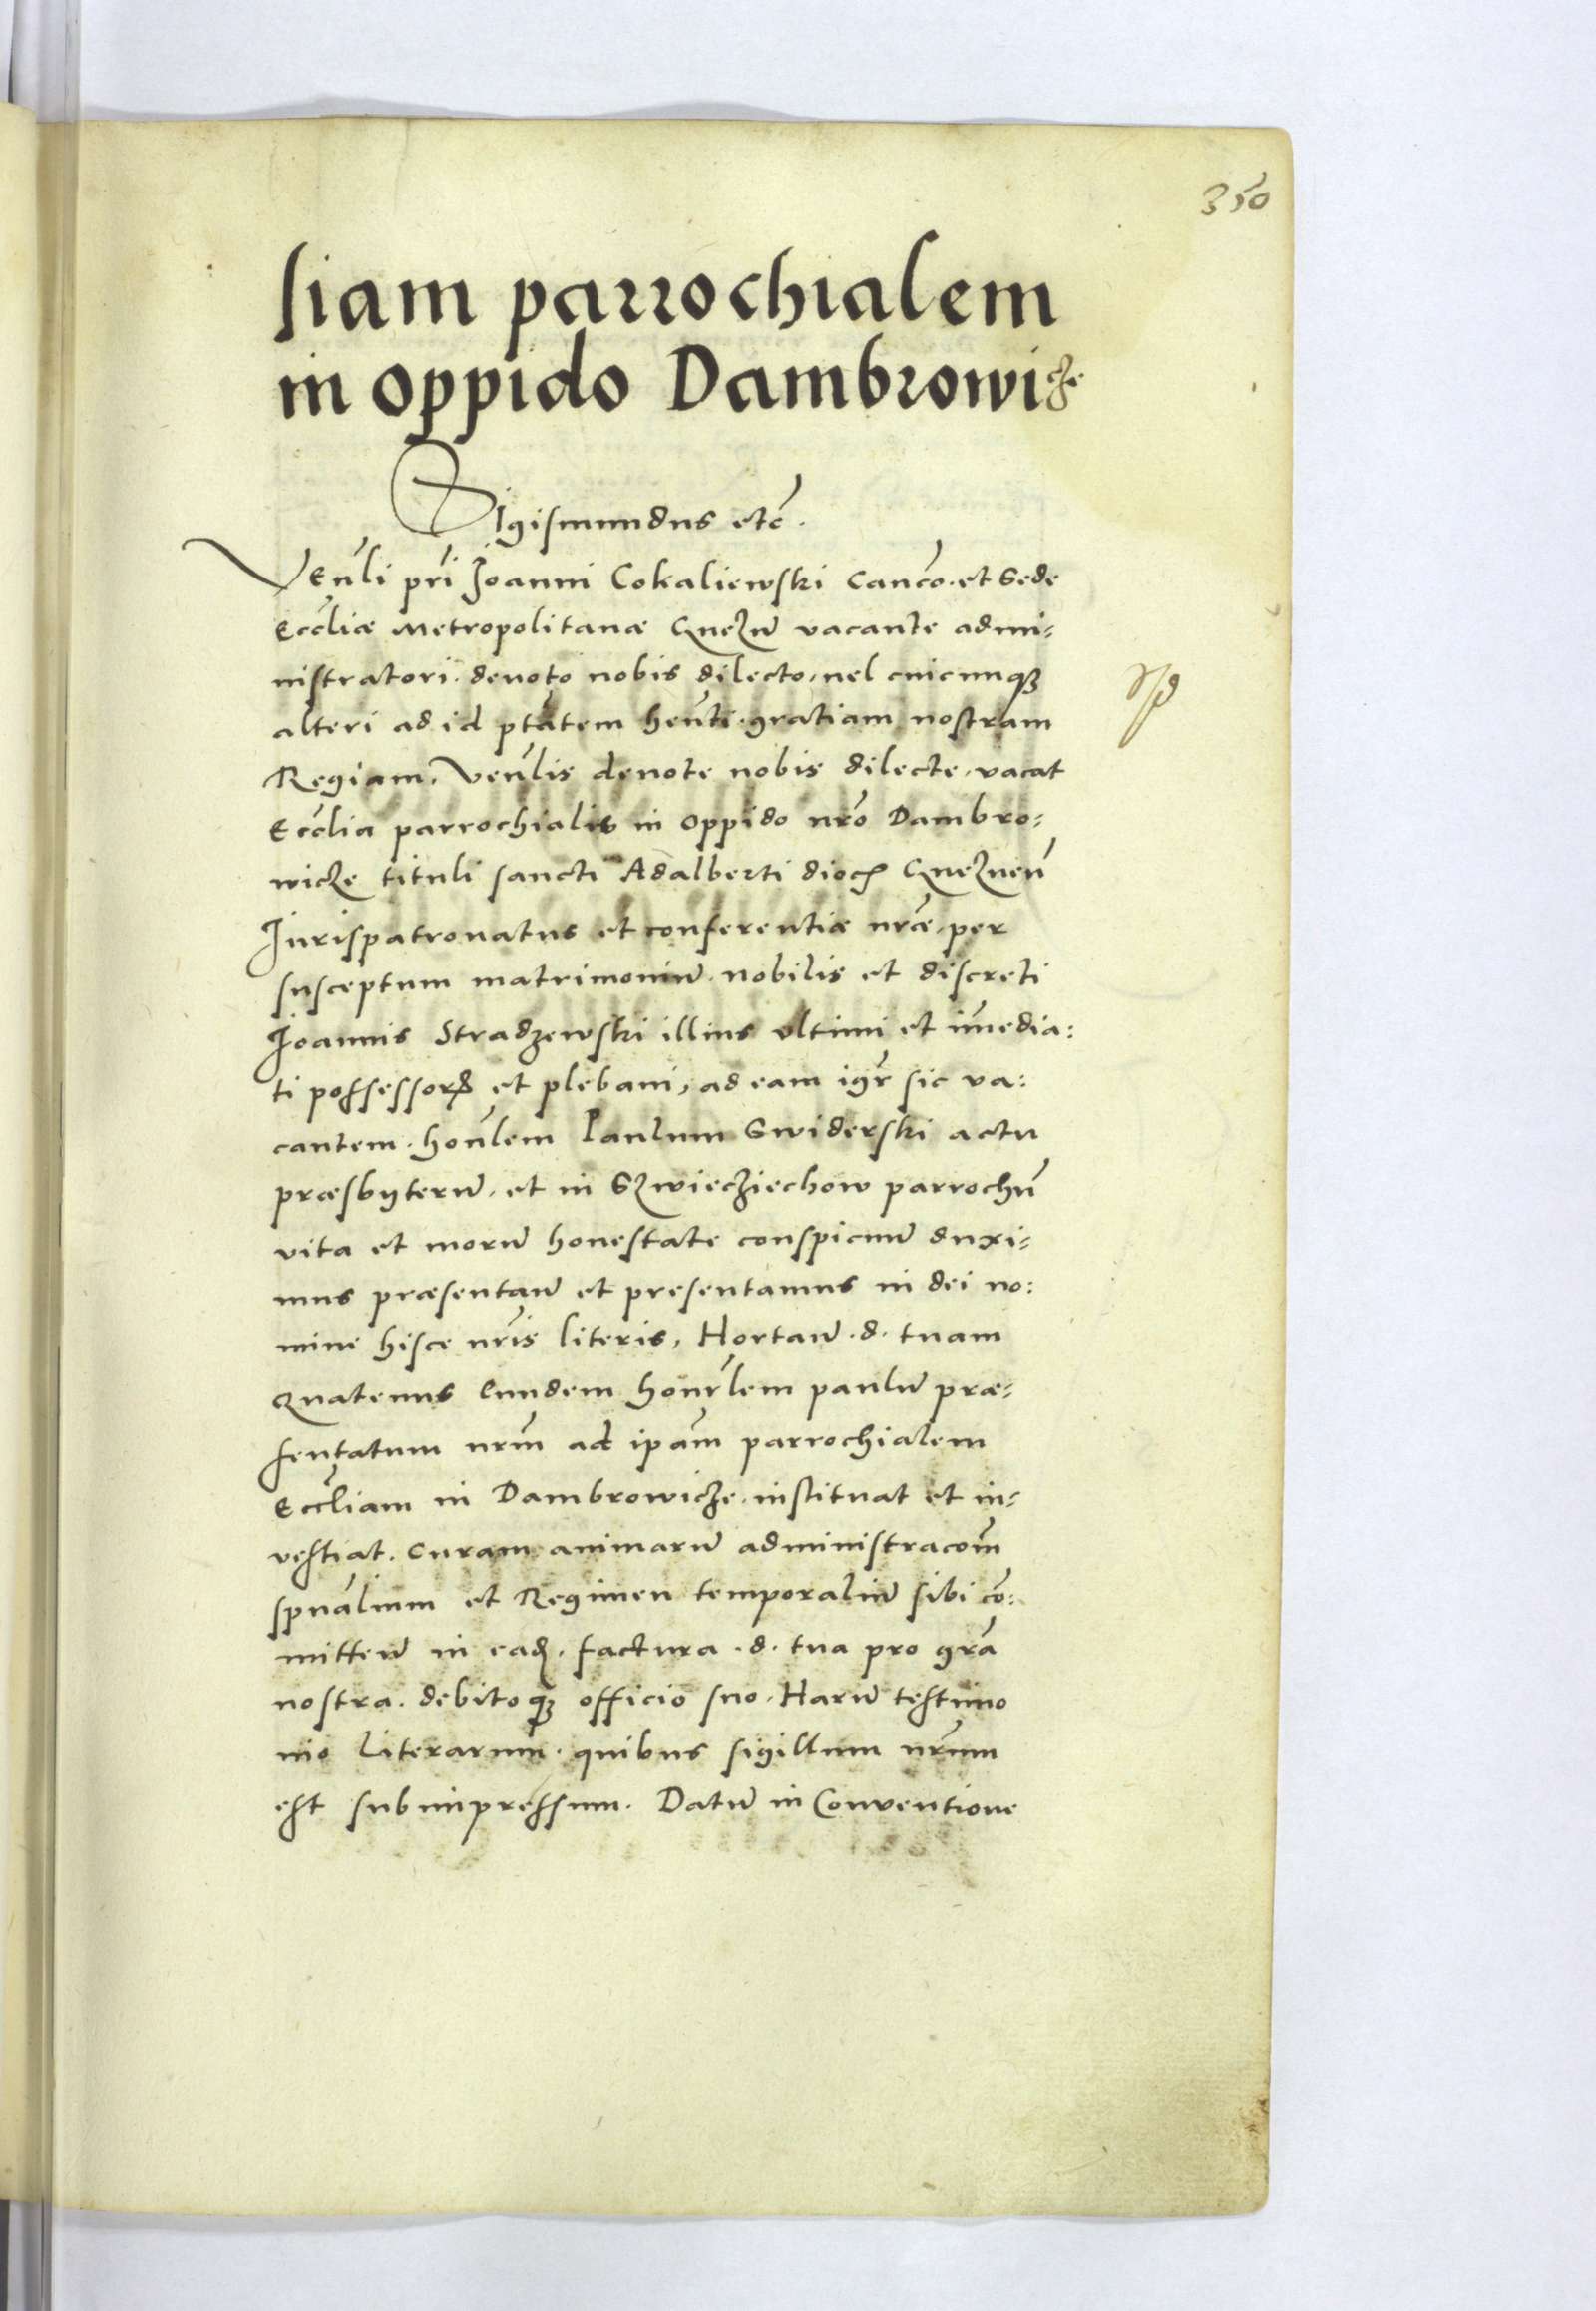 350
siam parrochialem
in oppido Dambrowicze
Sigismundus etc̃.
Venĺi pr̃i Joanni Cokaliewski Canc̃o. et Sede
Eccĺiæ Metropolitanæ Gneznẽ vacante admi-
nistratori. deuoto nobis dilecto, uel cuicunqꝫ
alteri ad id ptãtem heñti. gratiam nostram
Regiam. Venĺis deuote nobis dilecte, vacat
Eccĺia parrochialis in oppido nr̃o Dambro:
wicze tituli sancti Adalberti dioc̃ Gneznen̄
Jurispatronatus et conferentiæ nr̃æ, per
susceptum matrimoniū. nobilis et discreti
Joannis Stradzewski illius ultimi et im̄edia:
ti possessoris et plebani, ad eam igr̃ sic va:
cantem. honĺem Paulum Swiderski actu
præsbyterū. et in Szwiecziechow parrochū
vita et morū honestate conspicuū duxi-
mus præsentandū et presentamus in dei no:
mine hisce nr̃is literis, Hortamur .d. tuam
Quatenus Eundem honŕlem paulū præ-
sentatum nr̃m ad ipãm parrochialem
Eccĺiam in Dambrowicze. instituat et in-
vestiat. curam animarū administracõm
spuãlium et Regimen temporaliū sibi cõ:
mitteñ in eadem. factura .d. tua pro gr̃a
nostra. debitoqꝫ officio suo. Harū testimo
nio Literarum. quibus sigillum nr̃um
est subimpressum. Datū in Conventione